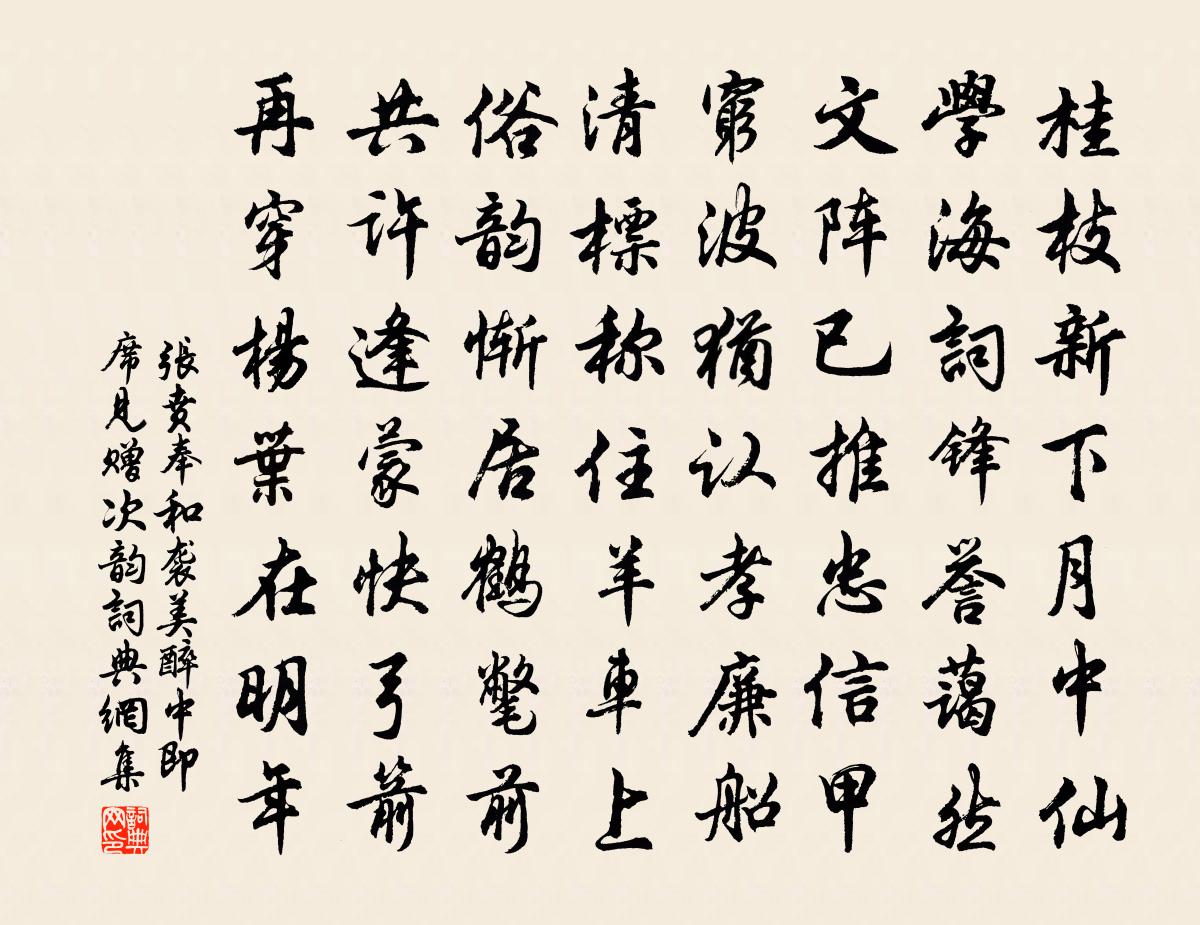 桂枝新下月中仙
學海詞锋誉藹然
文阵已推忠信甲
窮波猶认孝廉船
清標称住羊車上
俗韵惭居鶴氅前
共许逢蒙快弓箭
再穿楊葉在明年
張賁奉和袭美醉中即
席見赠次韵詞典網集
詞典
网印